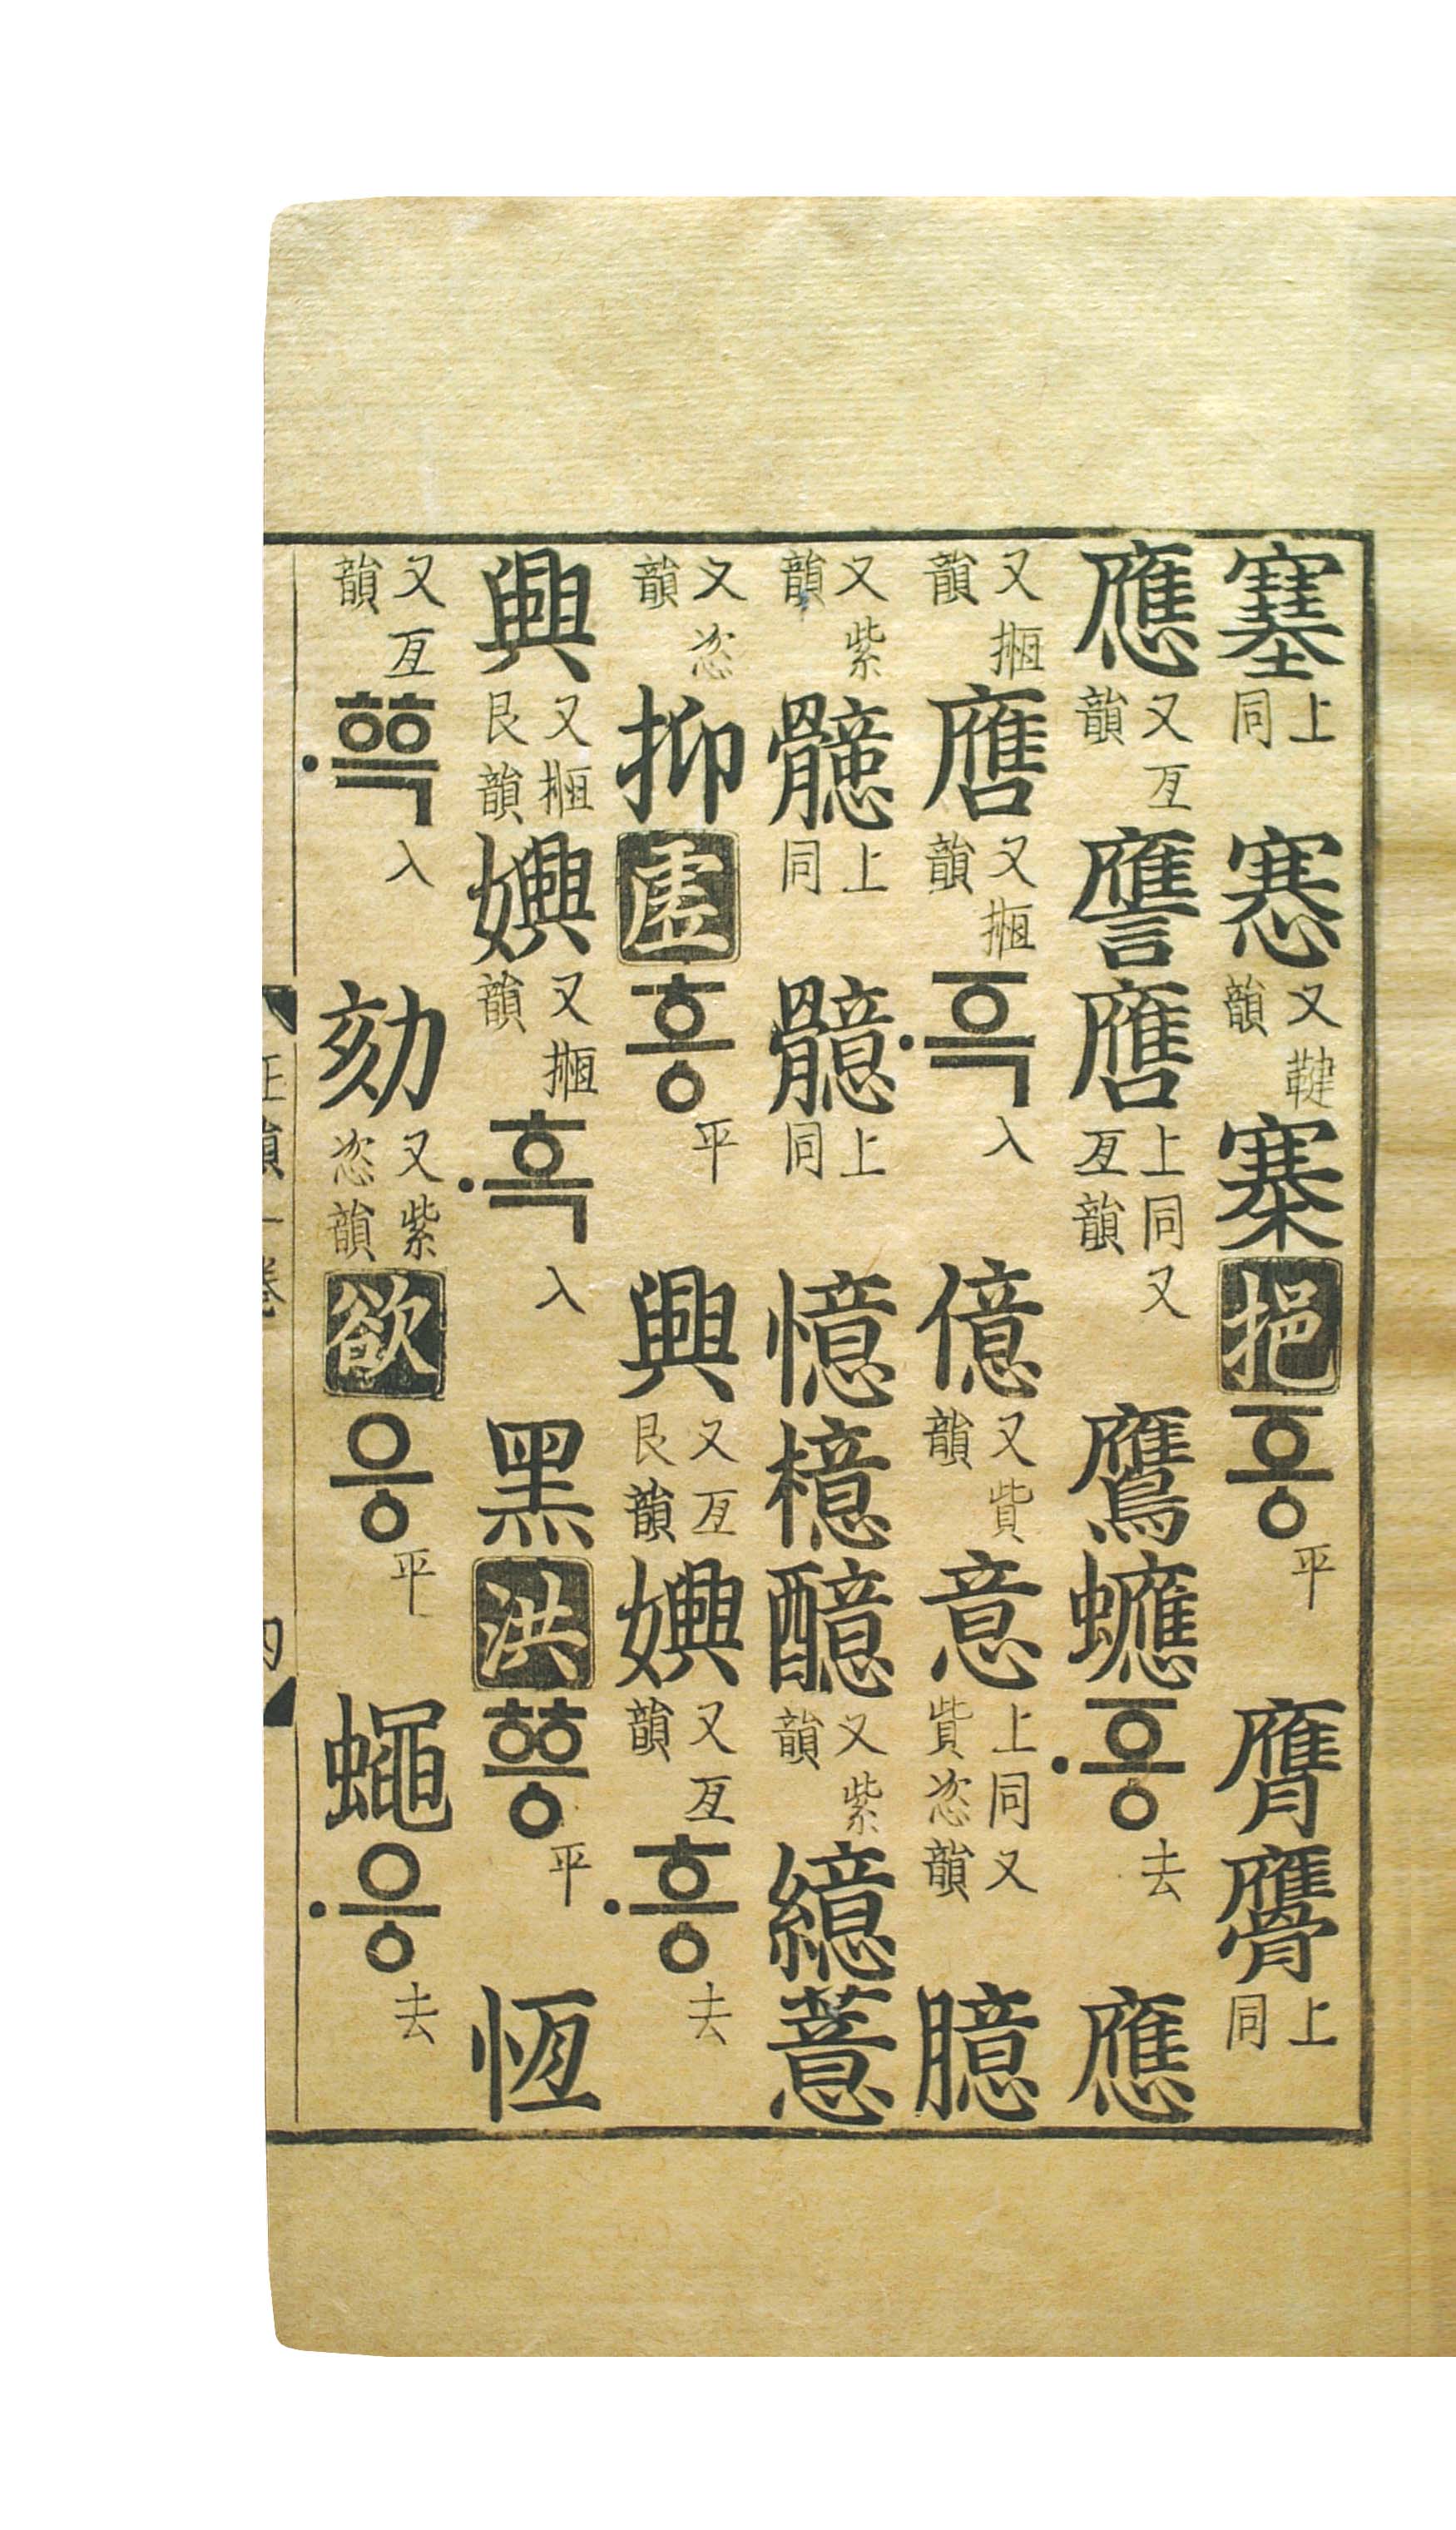 塞上同㥶又鞬韻寨挹ᅙᅳᆼ平膺上同
應又亙韻譍上同又亙韻鷹ᅙᅳᆼ〮去應
又揯韻又揯韻ᅙᅳᆨ〮入億又貲韻意上同又貲恣韻臆
又紫韻上同上同憶檍醷又紫韻繶薏
又恣韻抑虛흥平興又亙艮韻嬹又亙韻흥〮去
興又揯艮韻嬹又揯韻흑〮入黑洪ᅘᅳᆼ平恆
又亙韻ᅘᅳᆨ〮入劾又紫恣韻欲응平蠅응〮去